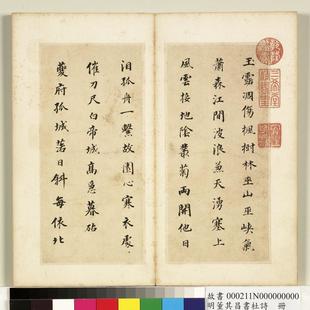 玉露凋傷楓樹林巫山巫峽氣
蕭森江間波浪兼天湧塞上
風雲接地陰叢菊兩開他日
泪孤舟一繫故園心寒衣處
催刀尺白帝城高急暮砧
夔府孤城落日斜每依北
故書 000211N000000000
明董其昌書杜詩 冊